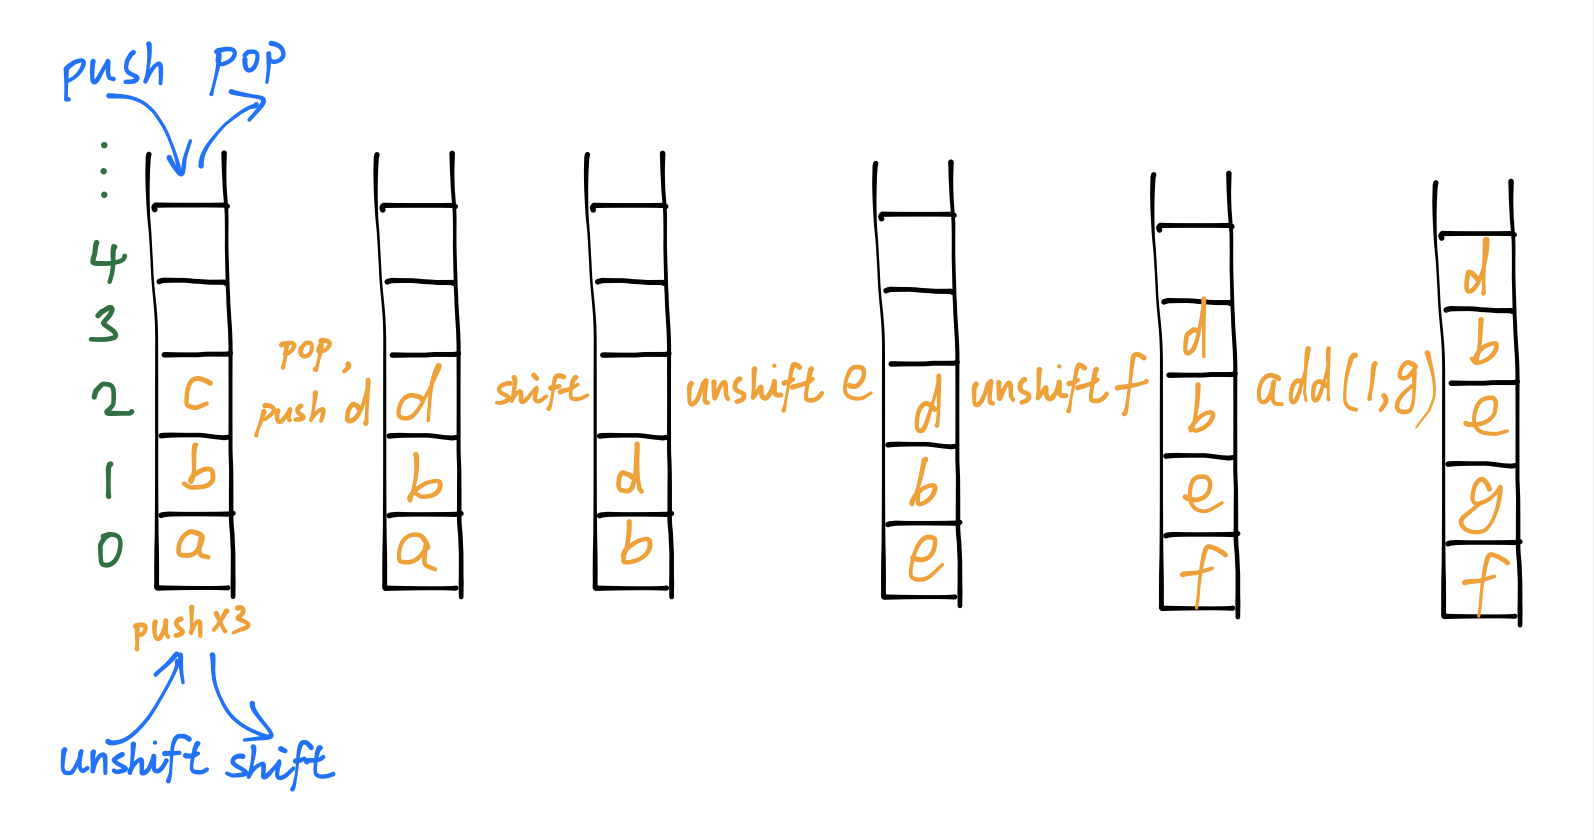 push pop
⋮
4
3
2
1
0
c
b
a
push×3
unshift shift
pop,
push d
d
b
a
shift
d
b
unshift e
d
b
e
unshift f
d
b
e
f
add(1,g)
d
b
e
g
f